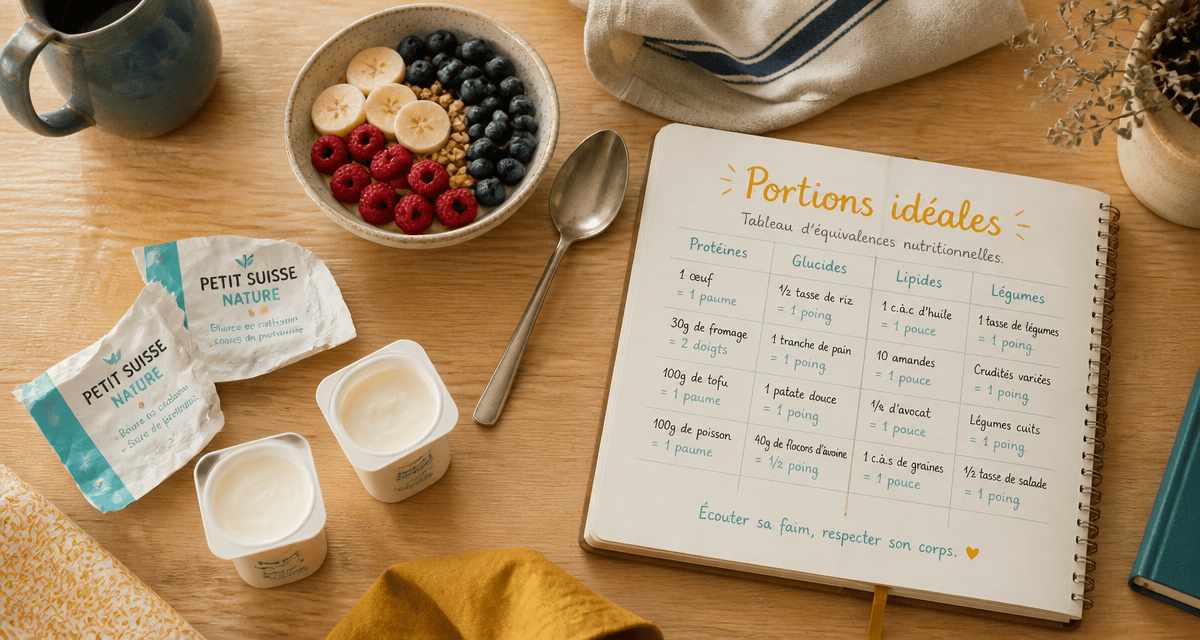 PETIT SUISSE
NATURE
PETIT SUISSE
NATURE
Portions idéales
Tableau d'équivalences nutritionnelles.
Protéines Glucides Lipides Légumes
1 œuf
= 1 paume
½ tasse de riz
= 1 poing
1 c.à.c d'huile
= 1 pouce
1 tasse de légumes
= 1 poing
30g de fromage
= 2 doigts
1 tranche de pain
= 1 poing
10 amandes
= 1 pouce
Crudités variées
= 1 poing
100g de tofu
= 1 paume
1 patate douce
= 1 poing
d'avocat
= 1 pouce
Légumes cuits
= 1 poing
100g de poisson
= 1 paume
40g de flocons d'avoine
= ½ poing
1 c.à.s de graines
= 1 pouce
½ tasse de salade
= 1 poing
Écouter sa faim, respecter son corps.